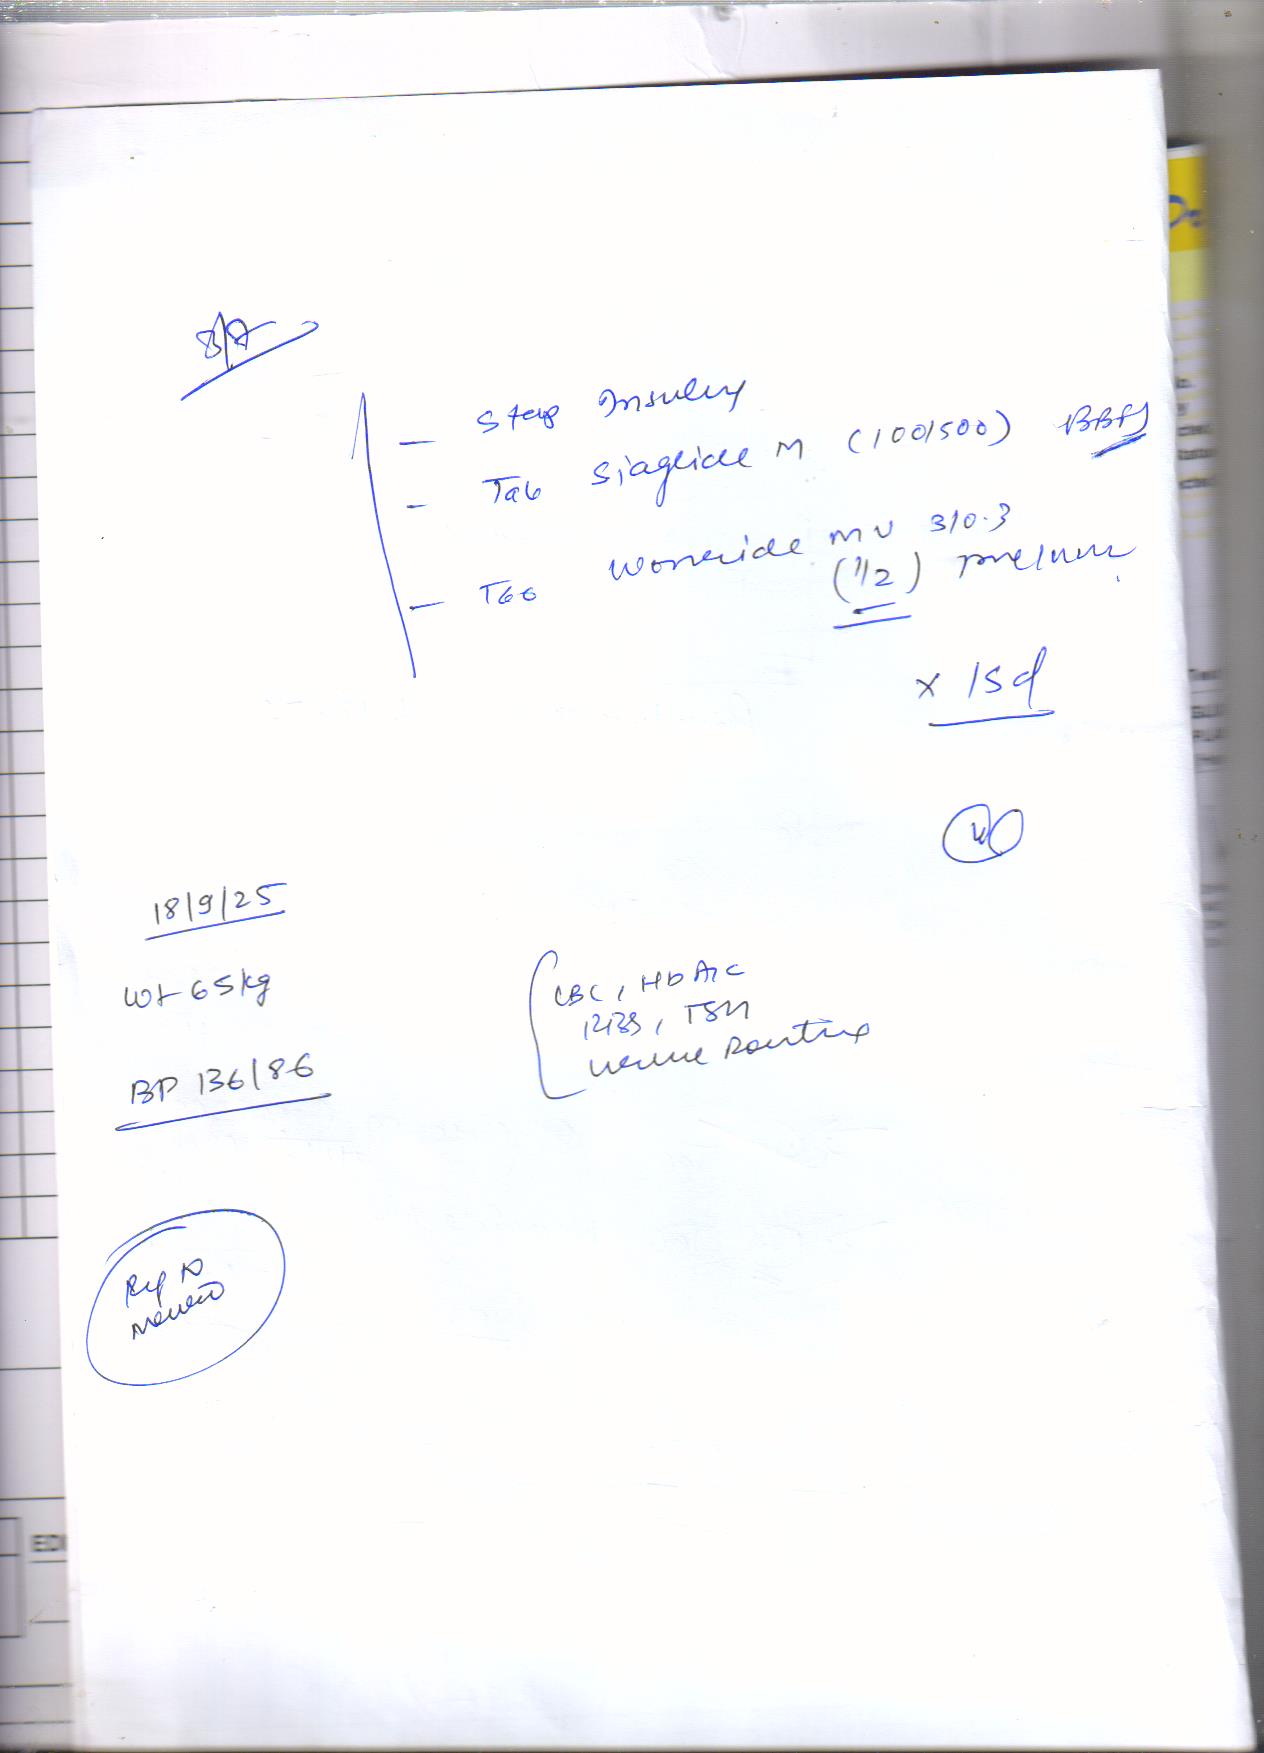 8/7
- Stop Insulin
- Tab Siaglide M (100/500) BBF
- Tab MV 3/0.3
(1/2)
x 15d
18/9/25
Wt 65kg
BP 136/86
CBC, HbA1c
TSH
Urine Routine